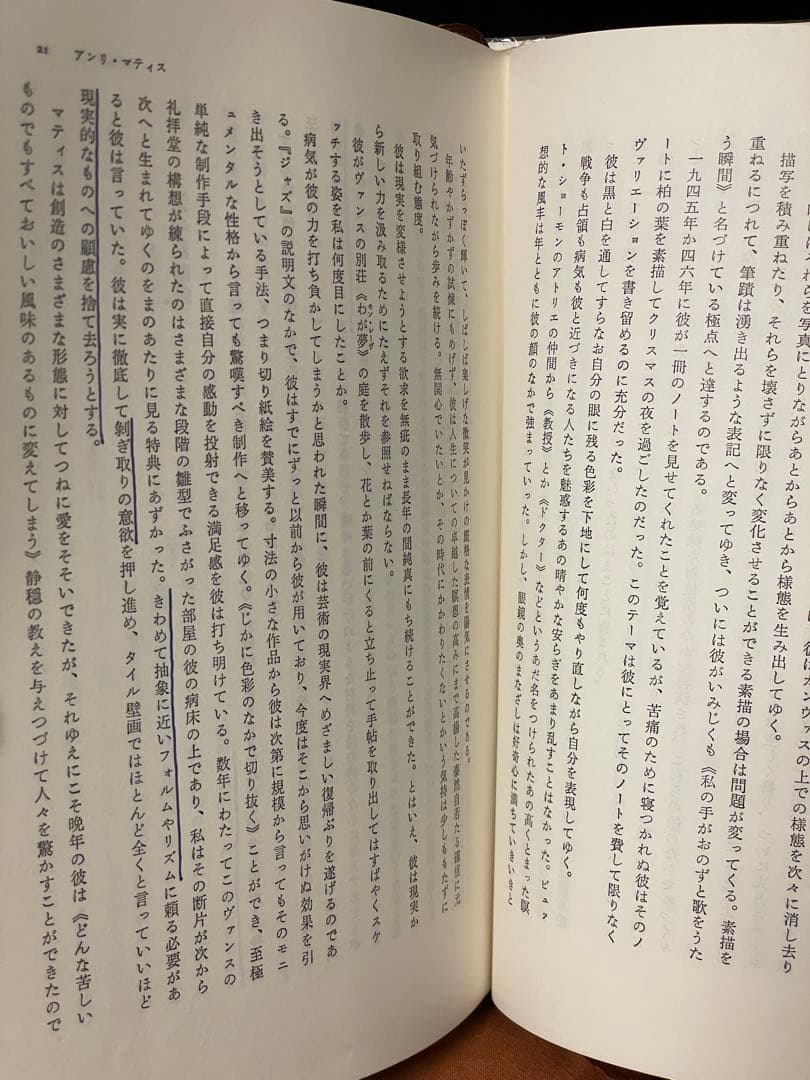 描写を積み重ねたり、それらを壊さずに限りなく変化させることができる素描の場合は問題が変ってくる。素描を
重ねるにつれて、筆蹟は湧き出るような表記へと変ってゆき、ついには彼がいみじくも《私の手がおのずと歌をうた
う瞬間》と名づけている極点へと達するのである。
一九四五年か四六年に彼が一冊のノートを見せてくれたことを覚えているが、苦痛のために寝つかれぬ彼はそのノ
ートに柏の葉を素描してクリスマスの夜を過ごしたのだった。このテーマは彼にとってそのノートを費して限りなく
ヴァリエーションを書き留めるのに充分だった。
彼は黒と白を通してすらなお自分の眼に残る色彩を下地にして何度もやり直しながら自分を表現してゆく。
戦争も占領も病気も彼と近づきになる人たちを魅惑するあの晴やかな安らぎをあまり乱すことはなかった。ビュッ
ト・ショーモンのアトリエの仲間から《教授》とか《ドクター》などというあだ名をつけられたあの高くとまった瞑
想的な風丰は年とともに彼の顔のなかで強まっていった。しかし、眼鏡の奥のまなざしは好奇心に満ちていきいきと
いたずらっぽく輝いて、しばしば楽しげな微笑が見かけの厳格な表情を陽気にさせるのである。
年齢やかずかずの試煉にもめげず、彼は人生についての卓越した瞑想の高みにまで高揚した泰然自若たる確信に元
気づけられながら歩みを続ける。無関心でいたいとか、その時代にかかわりたくないとかいう気持は少しももたずに
取り組む態度。
彼は現実を変様させようとする欲求を無疵のまま長年の間純真にもち続けることができた。とはいえ、彼は現実か
ら新しい力を汲み取るためにたえずそれを参照せねばならない。
彼がヴァンスの別荘《わが夢》の庭を散歩し、花とか葉の前にくると立ち止って手帖を取り出してはすばやくスケ
ッチする姿を私は何度目にしたことか。
病気が彼の力を打ち負かしてしまうかと思われた瞬間に、彼は芸術の現実界へめざましい復帰ぶりを遂げるのであ
る。『ジャズ』の説明文のなかで、彼はすでにずっと以前から彼が用いており、今度はそこから思いがけぬ効果を引
き出そうとしている手法、つまり切り紙絵を賛美する。寸法の小さな作品から彼は次第に規模から言ってもそのモニ
ュメンタルな性格から言っても驚嘆すべき制作へと移ってゆく。《じかに色彩のなかで切り抜く》ことができ、至極
単純な制作手段によって直接自分の感動を投射できる満足感を彼は打ち明けている。数年にわたってこのヴァンスの
礼拝堂の構想が練られたのはさまざまな段階の雛型でふさがった部屋の彼の病床の上であり、私はその断片が次から
次へと生まれてゆくのをまのあたりに見る特典にあずかった。きわめて抽象に近いフォルムやリズムに頼る必要があ
ると彼は言っていた。彼は実に徹底して剝ぎ取りの意欲を押し進め、タイル壁画ではほとんど全くと言っていいほど
現実的なものへの顧慮を捨て去ろうとする。
マティスは創造のさまざまな形態に対してつねに愛をそそいできたが、それゆえにこそ晩年の彼は《どんな苦しい
ものでもすべておいしい風味のあるものに変えてしまう》静穏の教えを与えつづけて人々を驚かすことができたので
21 アンリ・マティス